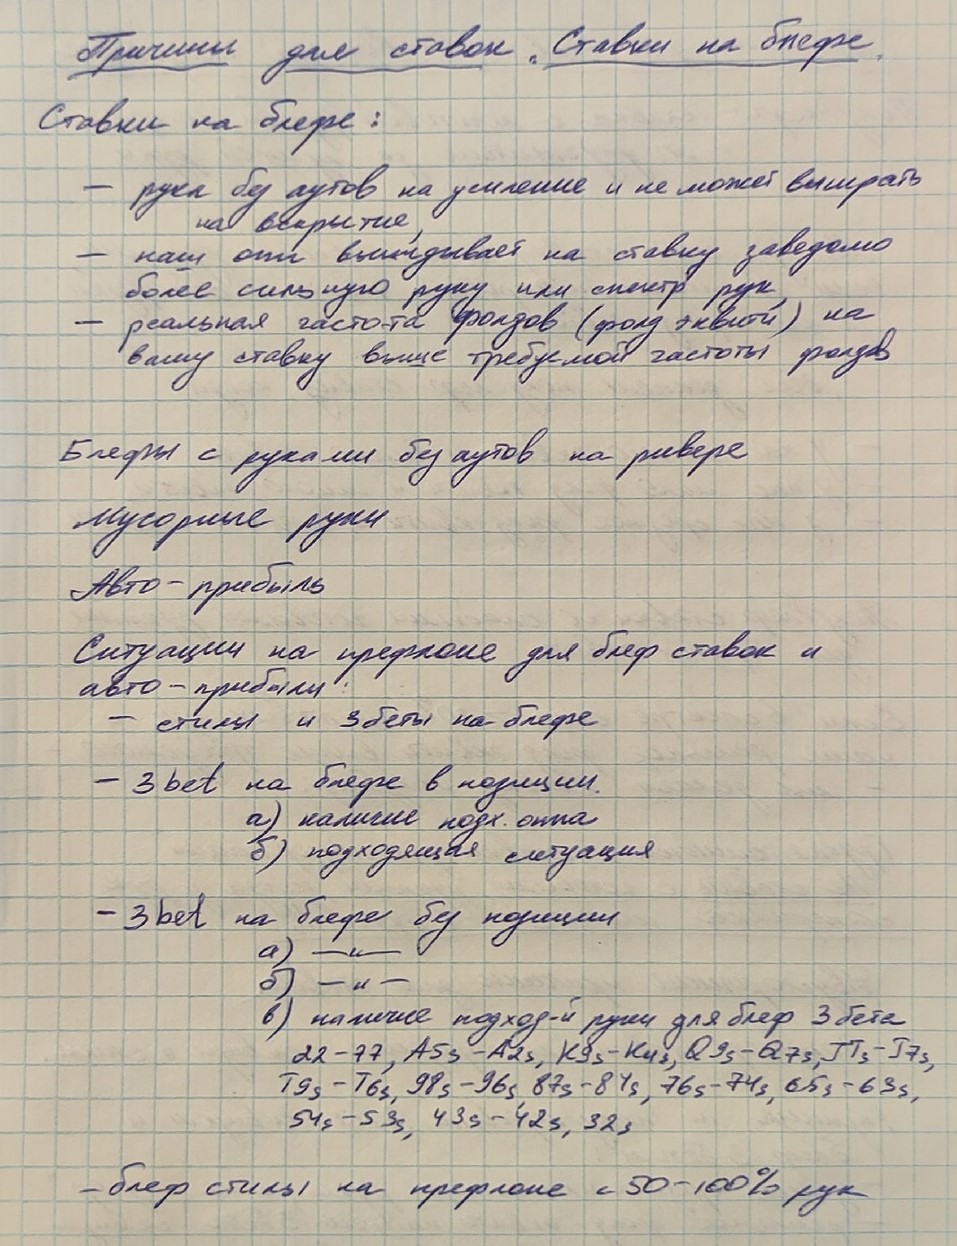 Причины для ставок. Ставки на блефе.
Ставки на блефе:
— рука без аутов на усиление и не может выиграть
на вскрытие,
— наш опп выкидывает на ставку заведомо
более сильную руку или спектр рук,
— реальная частота фолдов (фолд эквити) на
вашу ставку выше требуемой частоты фолдов
Блефы с руками без аутов на ривере
Мусорные руки
Авто-прибыль
Ситуации на префлопе для блеф ставок и
авто-прибыли:
— стилы и 3беты на блефе
— 3bet на блефе в позиции.
а) наличие подх. оппа
б) подходящая ситуация
— 3bet на блефе без позиции
а) —"—
б) —"—
в) наличие подход-й руки для блеф 3бета
22-77, A5s-A2s, K9s-K4s, Q9s-Q7s, JTs-J7s,
T9s-T6s, 98s-96s, 87s-84s, 76s-74s, 65s-63s,
54s-53s, 43s-42s, 32s
— блеф стилы на префлопе с 50-100% рук